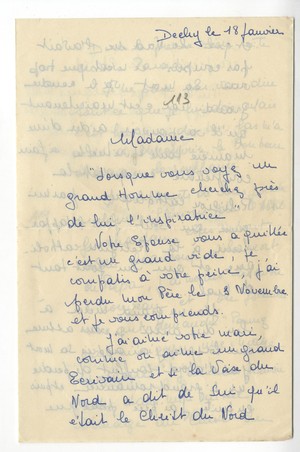 Dechy le 18 janvier
113
Madame
"Lorsque vous voyez un
grand Homme cherchez près
de lui l'inspiratrice
Votre Epoux vous a quittée
c'est un grand vide, je
compatis à votre peine, j'ai
perdu mon Père le 3 Novembre
et je vous comprends.
J'ai aimé votre mari,
comme on aime un grand
Ecrivain et si la Voix du
Nord a dit de Lui qu'il
était le Christ du Nord